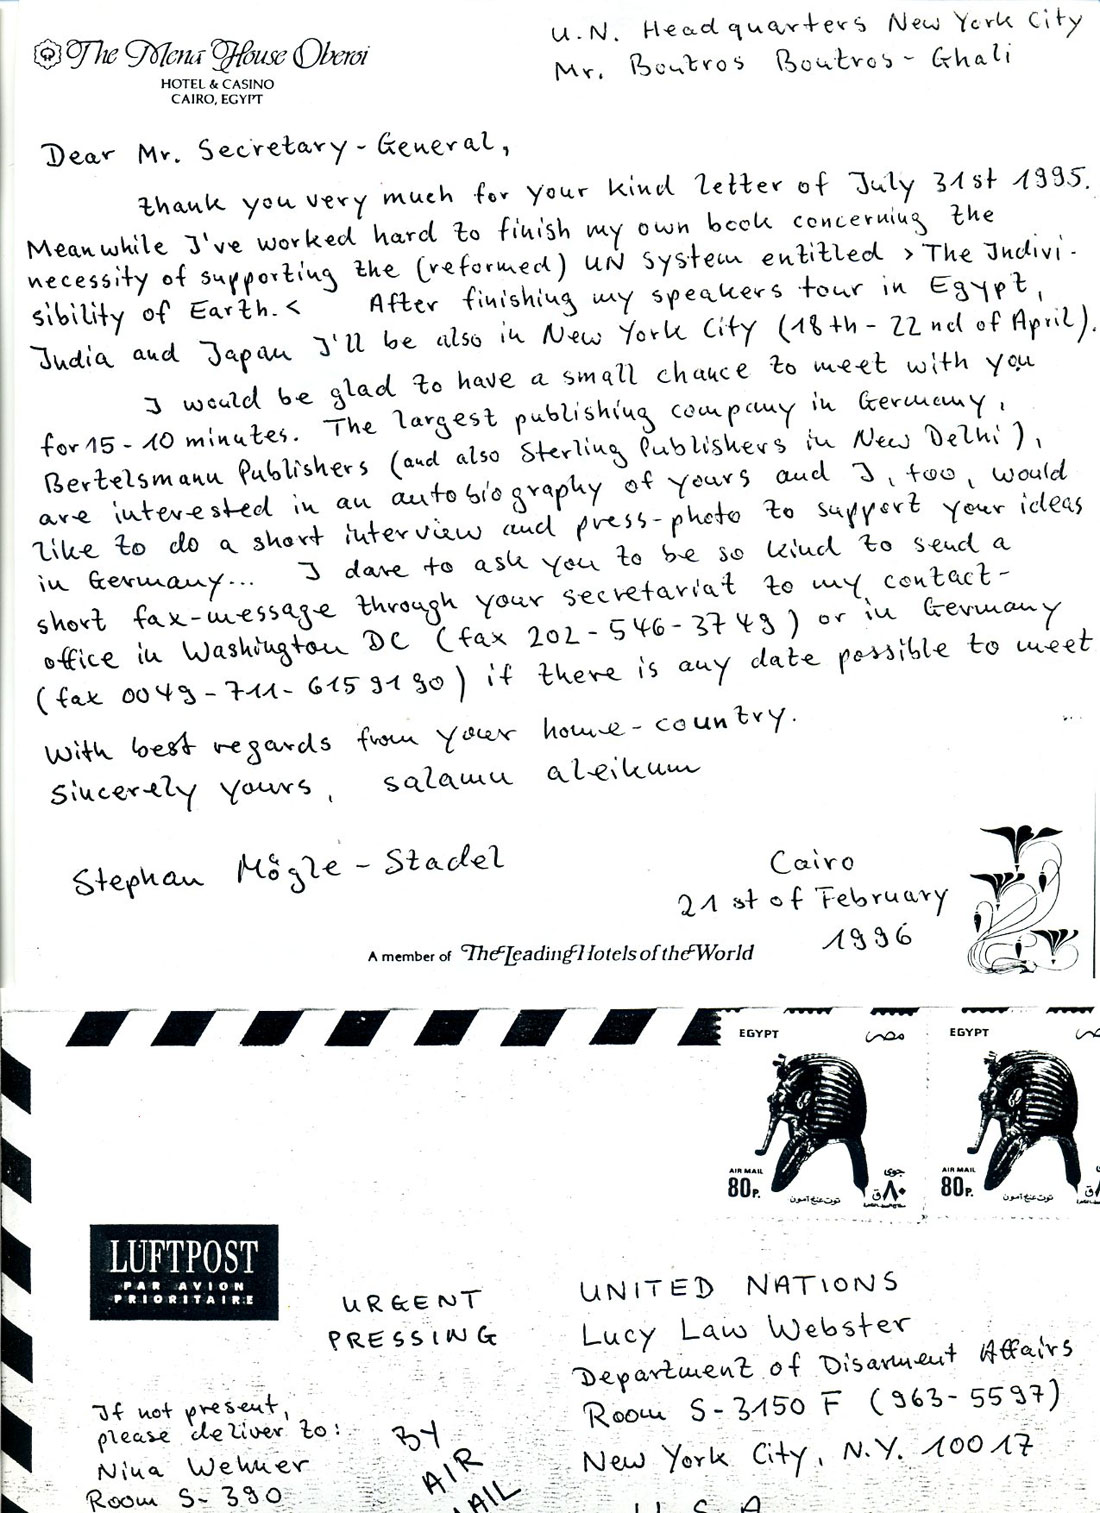 The Mena House Oberoi
HOTEL & CASINO
CAIRO, EGYPT
U.N. Headquarters New York City
Mr. Boutros Boutros-Ghali
Dear Mr. Secretary-General,
thank you very much for your kind letter of July 31st 1995.
Meanwhile I've worked hard to finish my own book concerning the
necessity of supporting the (reformed) UN system entitled >The Indivi-
sibility of Earth.< After finishing my speakers tour in Egypt,
India and Japan I'll be also in New York City (18th-22nd of April).
I would be glad to have a small chance to meet with you
for 15-10 minutes. The largest publishing company in Germany,
Bertelsmann Publishers (and also Sterling Publishers in New Delhi),
are interested in an autobiography of yours and I, too, would
like to do a short interview and press-photo to support your ideas
in Germany... I dare to ask you to be so kind to send a
short fax-message through your secretariat to my contact-
office in Washington DC (fax 202-546-3749) or in Germany
(fax 0049-711-6159190) if there is any date possible to meet
With best regards from your home-country.
Sincerely yours, salamu aleikum
Stephan Mögle-Stadel
Cairo
21st of February
1996
A member of The Leading Hotels of the World
EGYPT مصر
AIR MAIL جوى
80P. ٨٠ق
توت عنخ آمون
EGYPT
AIR MAIL
80P. ٨٠ق
توت عنخ آمون
LUFTPOST
PAR AVION
PRIORITAIRE
URGENT
PRESSING
UNITED NATIONS
Lucy Law Webster
Department of Disarment Affairs
Room S-3150 F (963-5597)
New York City, N.Y. 10017
U S A
If not present,
please deliver to:
Nina Wehner
Room S-390
BY
AIR
MAIL